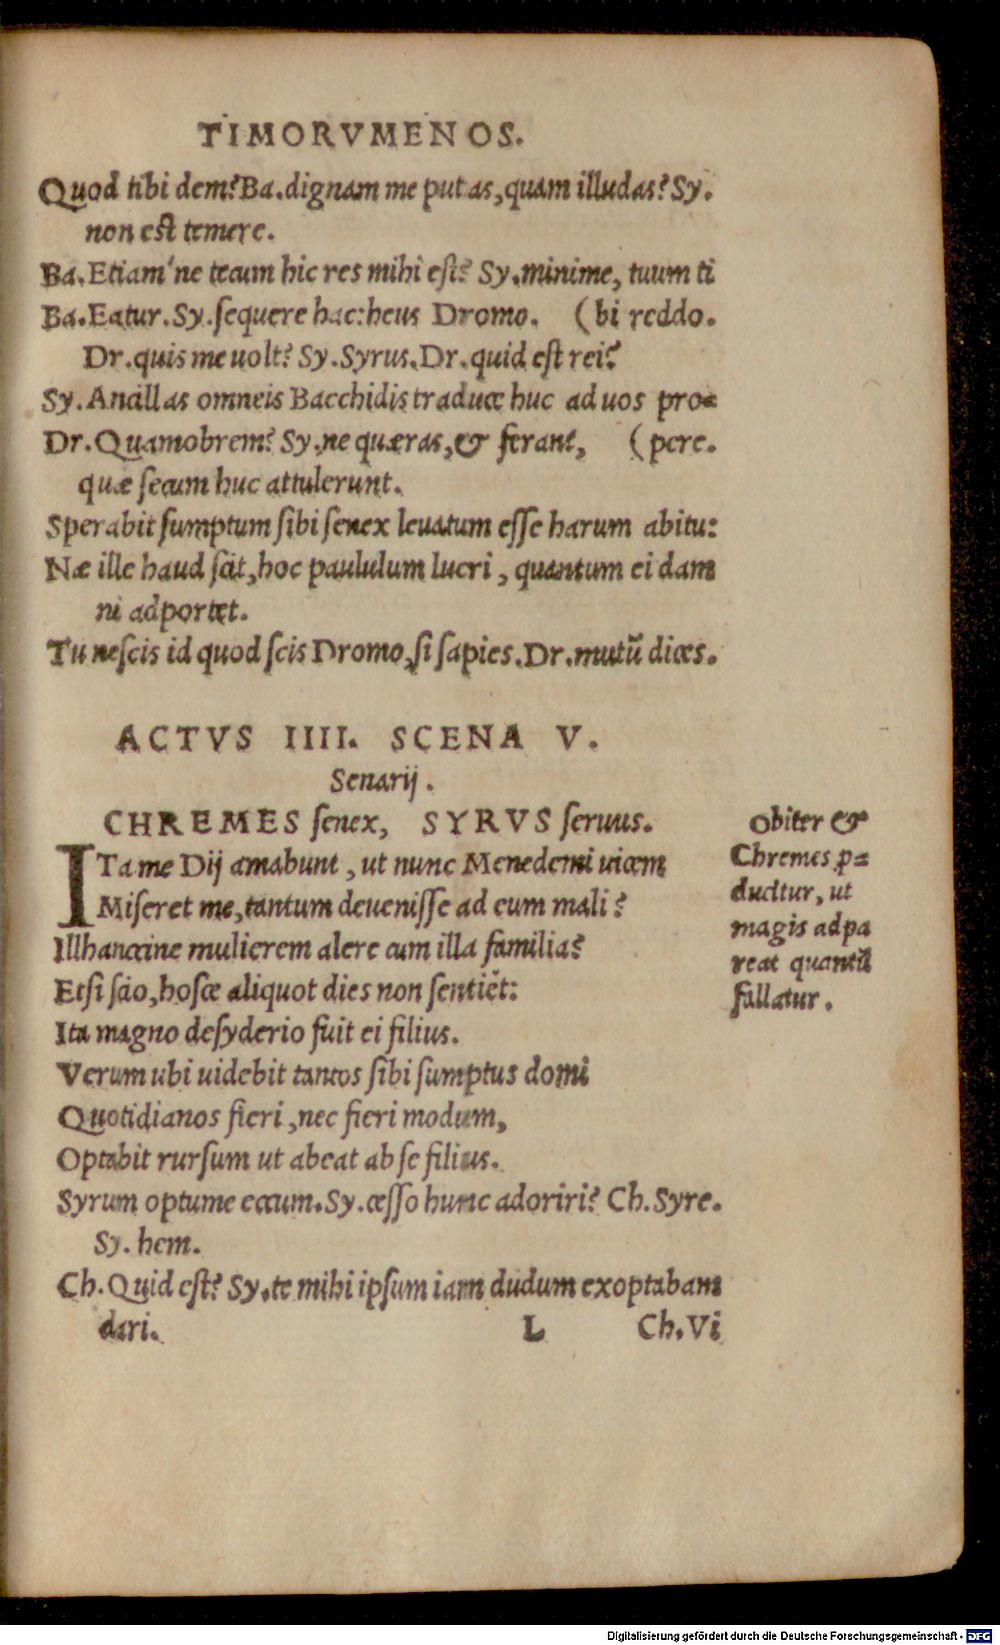 TIMORVMENOS.
Quod tibi dem? Ba. dignam me putas, quam illudas? Sy.
non est temere.
Ba. Etiam'ne tecum hic res mihi est? Sy. minime, tuum ti
Ba. Eatur. Sy. sequere hac: heus Dromo. (bi reddo.
Dr. quis me uolt? Sy. Syrus. Dr. quid est rei?
Sy. Ancillas omneis Bacchidis traduce huc ad uos pro=
Dr. Quamobrem? Sy. ne quæras, & ferant, (pere.
quæ secum huc attulerunt.
Sperabit sumptum sibi senex leuatum esse harum abitu:
Næ ille haud scit, hoc paululum lucri, quantum ei dam
ni adportet.
Tu nescis id quod scis Dromo, si sapies. Dr. mutū dices.
ACTVS IIII. SCENA V.
Senarij.
CHREMES senex, SYRVS seruus.
ITa me Dij amabunt, ut nunc Menedemi uicem
Miseret me, tantum deuenisse ad eum mali?
Illhanccine mulierem alere cum illa familia?
Etsi scio, hosce aliquot dies non sentiēt:
Ita magno desyderio fuit ei filius.
Verum ubi uidebit tantos sibi sumptus domi
Quotidianos fieri, nec fieri modum,
Optabit rursum ut abeat ab se filius.
Syrum optume eccum. Sy. cesso hunc adoriri? Ch. Syre.
Sy. hem.
Ch. Quid est? Sy. te mihi ipsum iam dudum exoptabam
dari. L Ch. Vi
Obiter &
Chremes p=
ducitur, ut
magis adpa
reat quantū
fallatur.
Digitalisierung gefördert durch die Deutsche Forschungsgemeinschaft - DFG